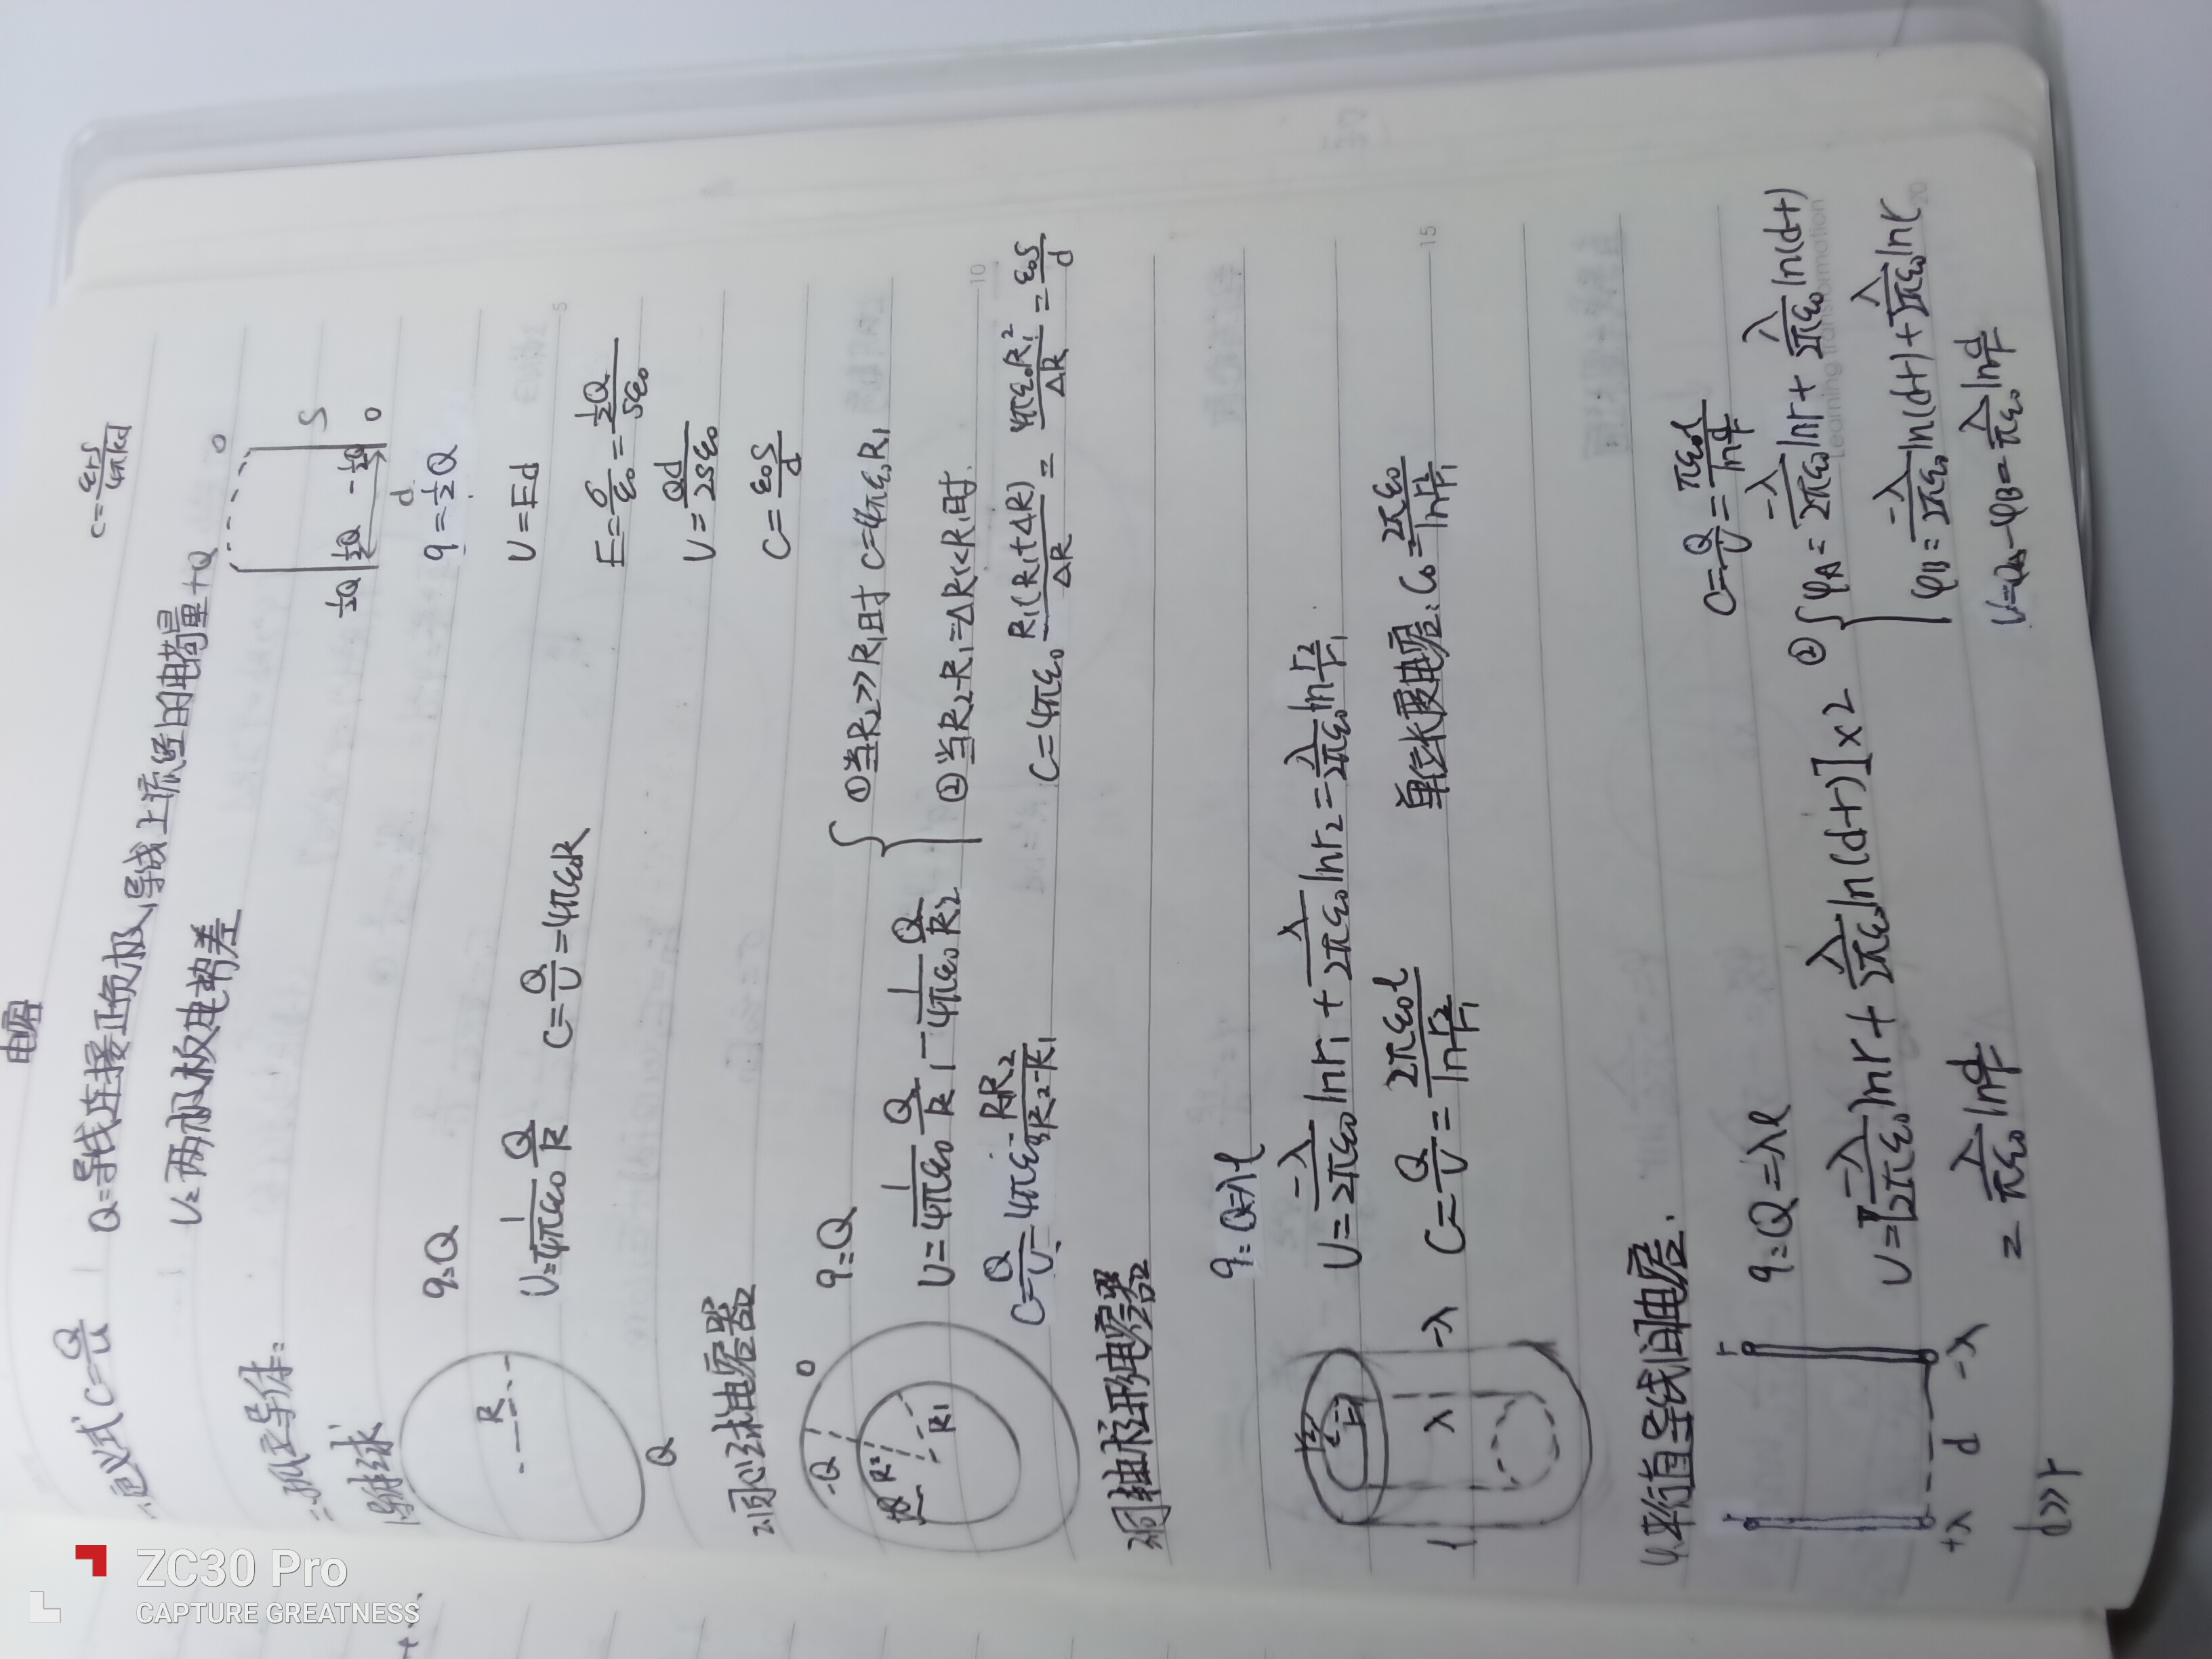 电容
一.定义式 C=Q/U Q=导线连接正负极,导线上流经的电荷量
U=两极板电势差
C=εrS/4πkd
二.孤立导体:
1.导体球
R
Q
q=Q
U=1/4πε₀ Q/R C=Q/U=4πε₀R
+Q 0
S
½Q ½Q -½Q 0
d
q=½Q
U=Ed
E=σ/ε₀=½Q/Sε₀
U=Qd/2Sε₀
C=ε₀S/d
2.同心球电容器
0
-Q
R2
R1
q=Q
U=1/4πε₀ Q/R1-1/4πε₀ Q/R2
C=Q/U=4πε₀ R1R2/R2-R1
①当R2>>R1时 C=4πε₀R1
②当R2-R1=ΔR<<R1时
C=4πε₀ R1(R1+ΔR)/ΔR=4πε₀R1²/ΔR=ε₀S/d
3.同轴柱形电容器
r2
r1
l
λ
-λ
q=Q=λl
U=-λ/2πε₀ lnr1+λ/2πε₀ lnr2=λ/2πε₀ ln r2/r1
C=Q/U=2πε₀l/ln r2/r1 单位长度电容:C₀=2πε₀/ln r2/r1
4.平行直导线间电容.
r
+λ d -λ
d>>r
q=Q=λl
C=Q/U=πε₀l/ln d/r
U=[-λ/2πε₀ lnr+λ/2πε₀ ln(d-r)]×2
=λ/πε₀ ln d/r
② φA=-λ/2πε₀ lnr+λ/2πε₀ ln(d-r)
φB=-λ/2πε₀ ln(d-r)+λ/2πε₀ lnr
U=φA-φB=λ/πε₀ ln d/r
5
10
15
20
Learning Transformation
ZC30 Pro
CAPTURE GREATNESS